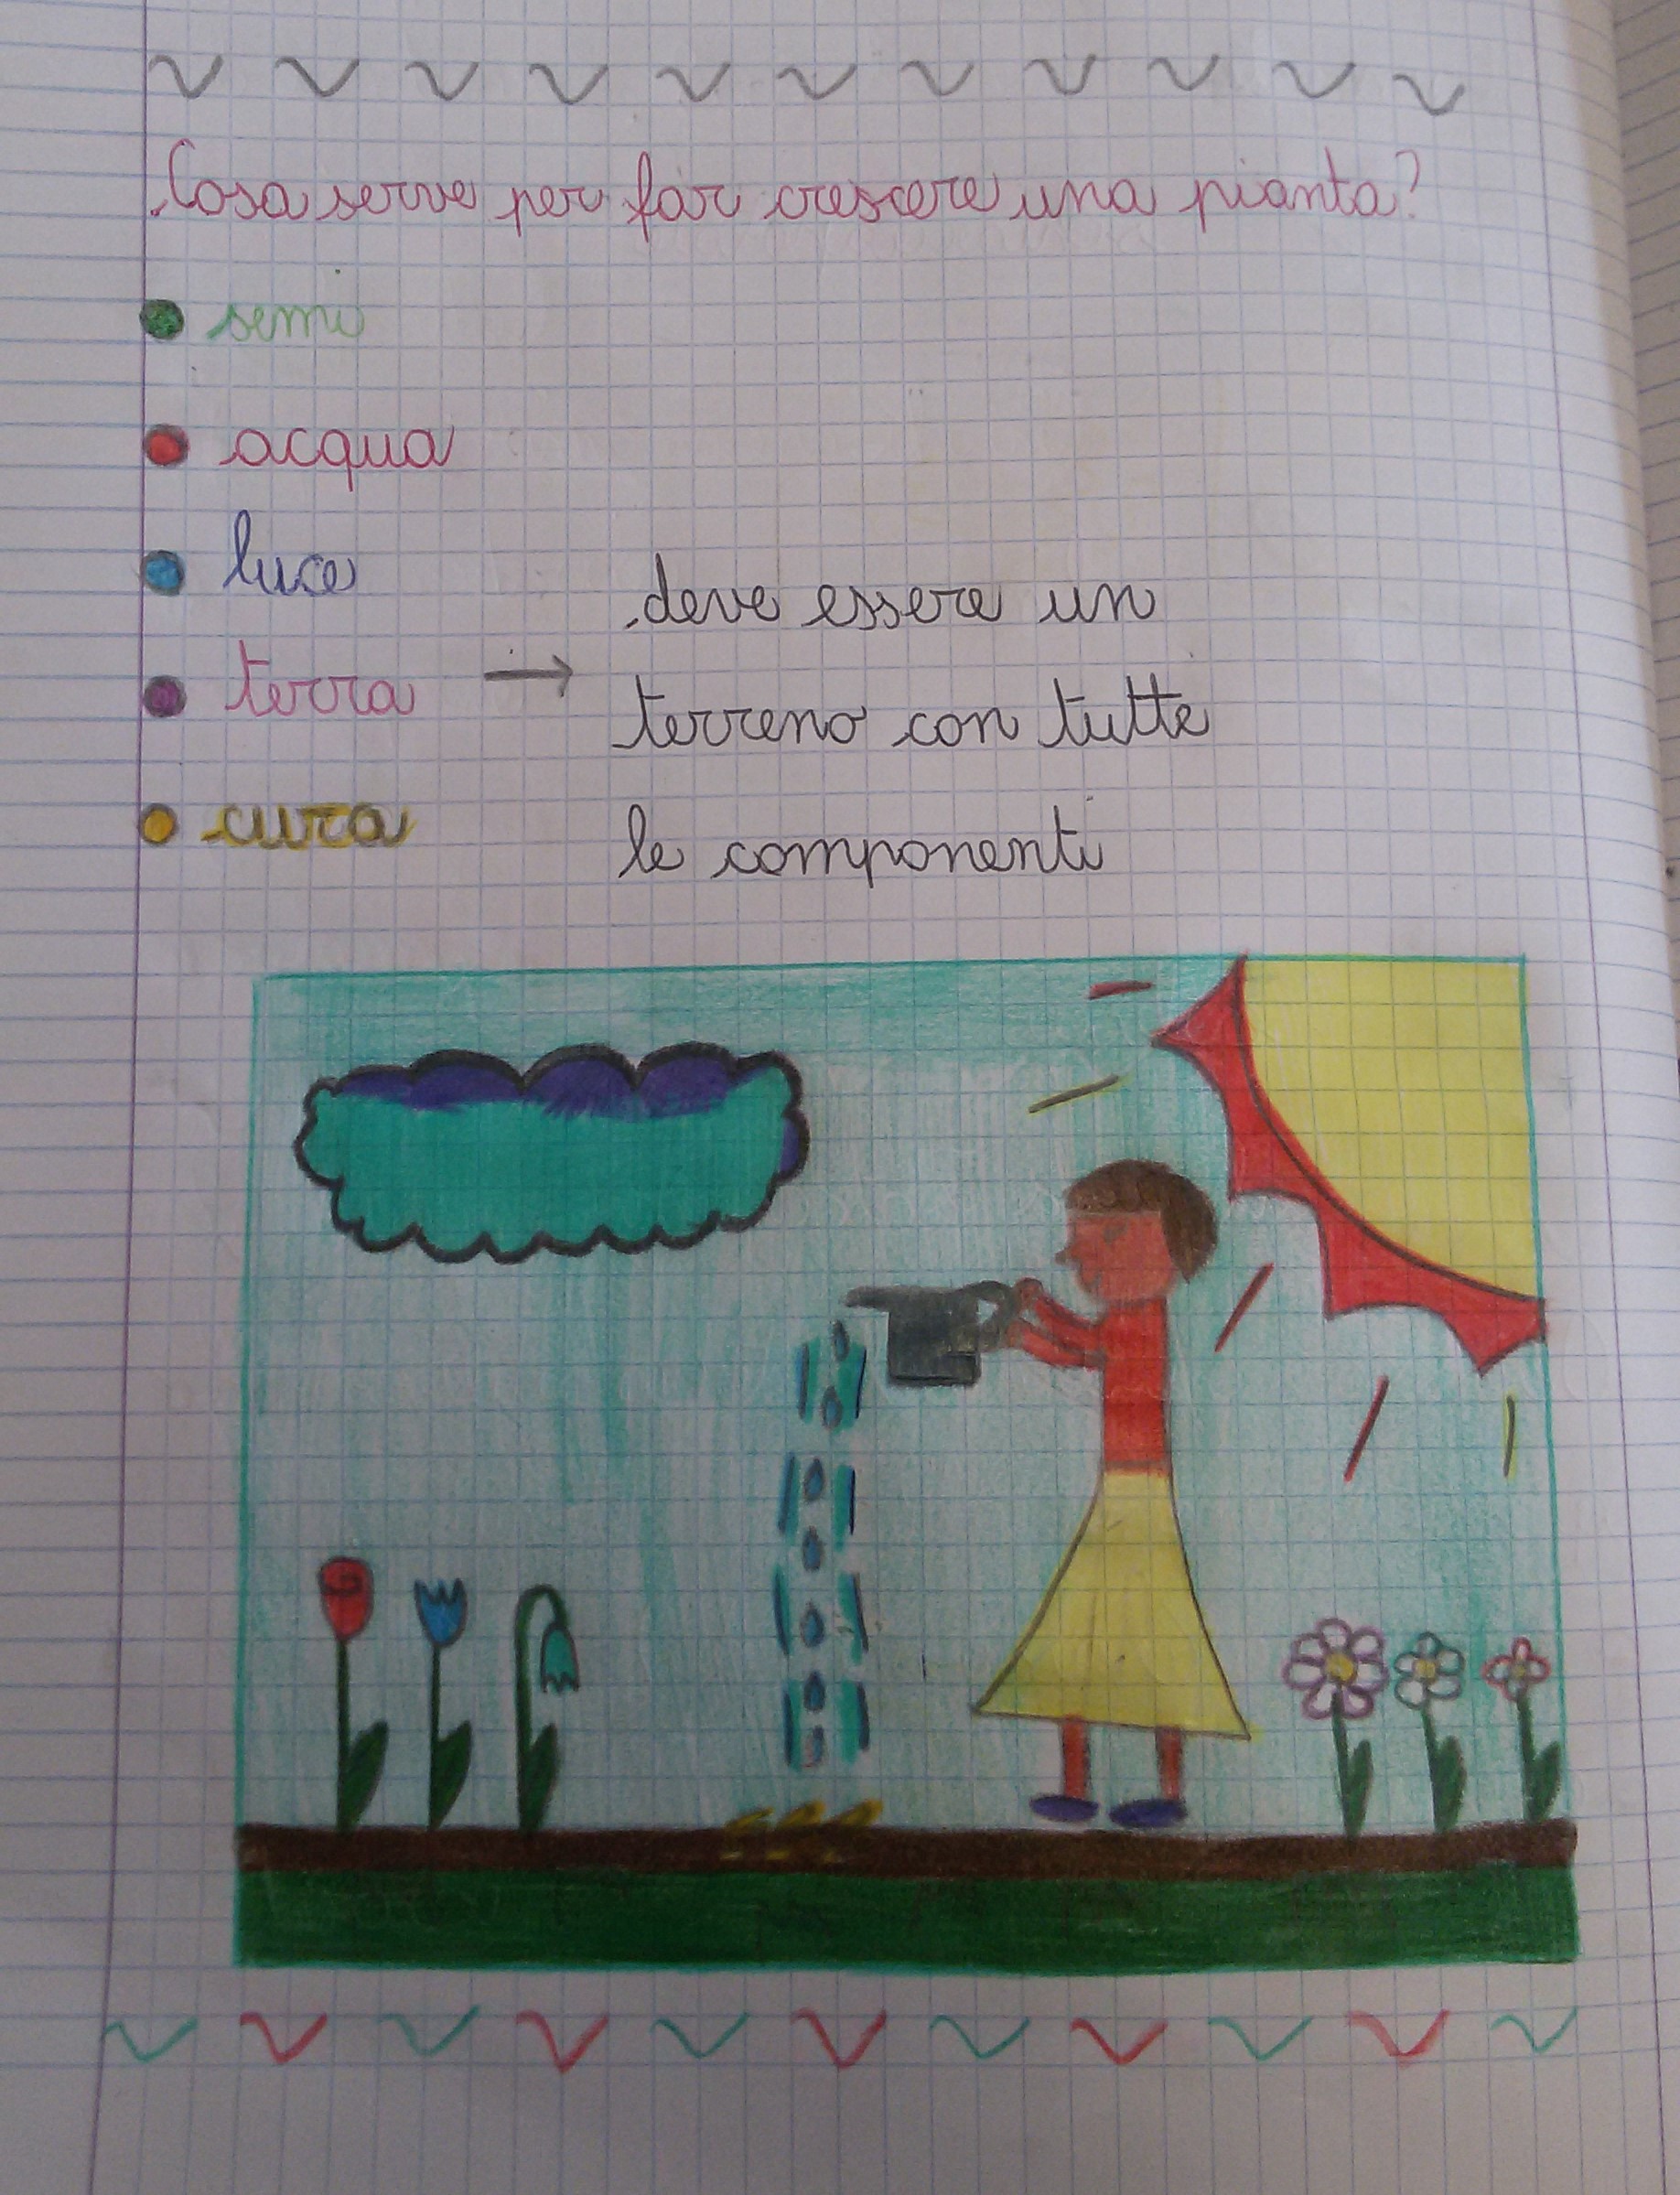 Cosa serve per far crescere una pianta?
semi
acqua
luce
terra → deve essere un
terreno con tutte
le componenti
cura